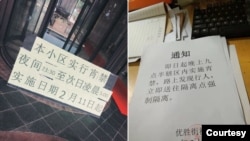 本小区实行宵禁
夜间23:30至次日凌晨
实施日期2月11日
通知
即日起晚上九
点半辖区内实施宵
禁，路上发现行人，
立即送往隔离点强
制隔离。
优胜街
Courtesy